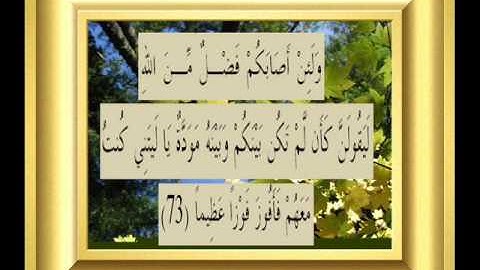 وَلَئِنْ أَصَابَكُمْ فَضْـــلٌ مِّـــنَ اللهِ
لَيَقُولَنَّ كَأَن لَّمْ تَكُن بَيْنَكُمْ وَبَيْنَهُ مَوَدَّةٌ يَا لَيْتَنِي كُنتُ
مَعَهُمْ فَأَفُوزَ فَوْزًا عَظِيماً (73)